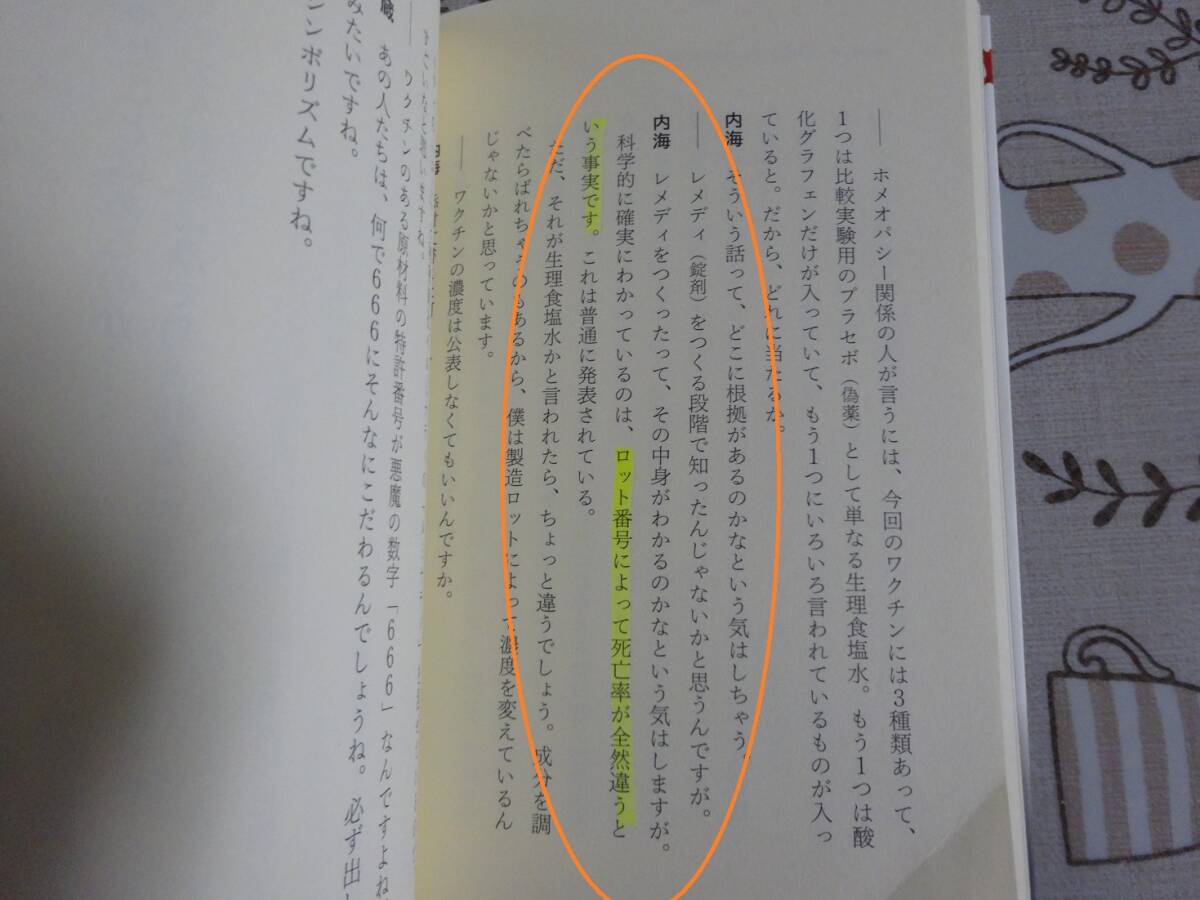 ―― ホメオパシー関係の人が言うには、今回のワクチンには3種類あって、
1つは比較実験用のプラセボ（偽薬）として単なる生理食塩水。もう1つは酸
化グラフェンだけが入っていて、もう1つにいろいろ言われているものが入っ
ていると。だから、どれに当たるか。
内海 そういう話って、どこに根拠があるのかなという気はしちゃう。
―― レメディ（錠剤）をつくる段階で知ったんじゃないかと思うんですが。
内海 レメディをつくったって、その中身がわかるのかなという気はしますが。
科学的に確実にわかっているのは、ロット番号によって死亡率が全然違うと
いう事実です。これは普通に発表されている。
ただ、それが生理食塩水かと言われたら、ちょっと違うでしょう。成分を調
べたらばれちゃうのもあるから、僕は製造ロットによって濃度を変えているん
じゃないかと思っています。
―― ワクチンの濃度は公表しなくてもいいんですか。
内海
―― ワクチンのある原材料の特許番号が悪魔の数字「666」なんですよね
蔵 あの人たちは、何で666にそんなにこだわるんでしょうね。必ず出し
みたいですね。
ンボリズムですね。